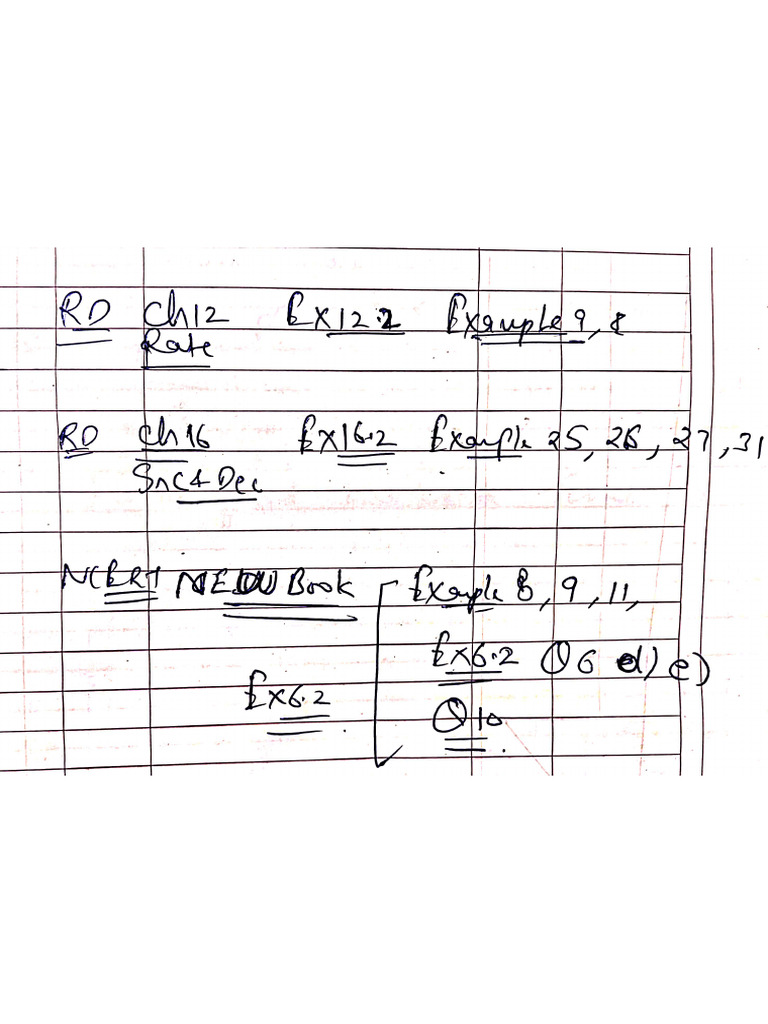 RD Ch12 Ex12.2 Example 9, 8
Rate
RD Ch 16 Ex16.2 Example 25, 26, 27, 31
Inc & Dec
NCERT NEW Book Example 8, 9, 11,
Ex6.2 Q6 d) e)
Ex6.2
Q10.